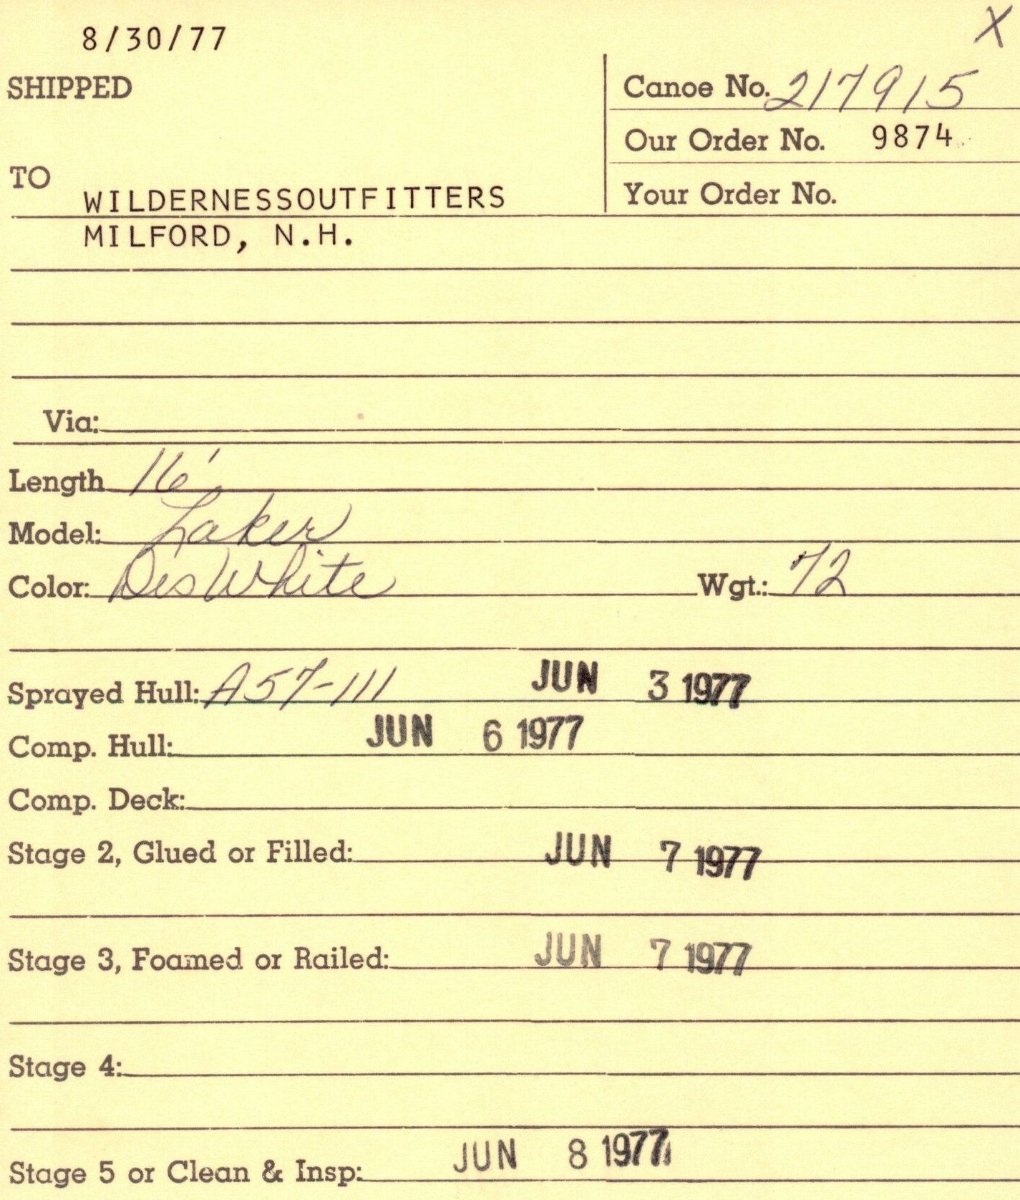 X
8/30/77
SHIPPED
Canoe No. 217915
Our Order No. 9874
TO
WILDERNESSOUTFITTERS
Your Order No.
MILFORD, N.H.
Via:
Length 16'
Model: Laker
Color: Des White Wgt.: 72
Sprayed Hull: A57-111 JUN 3 1977
Comp. Hull: JUN 6 1977
Comp. Deck:
Stage 2, Glued or Filled: JUN 7 1977
Stage 3, Foamed or Railed: JUN 7 1977
Stage 4:
Stage 5 or Clean & Insp: JUN 8 1977